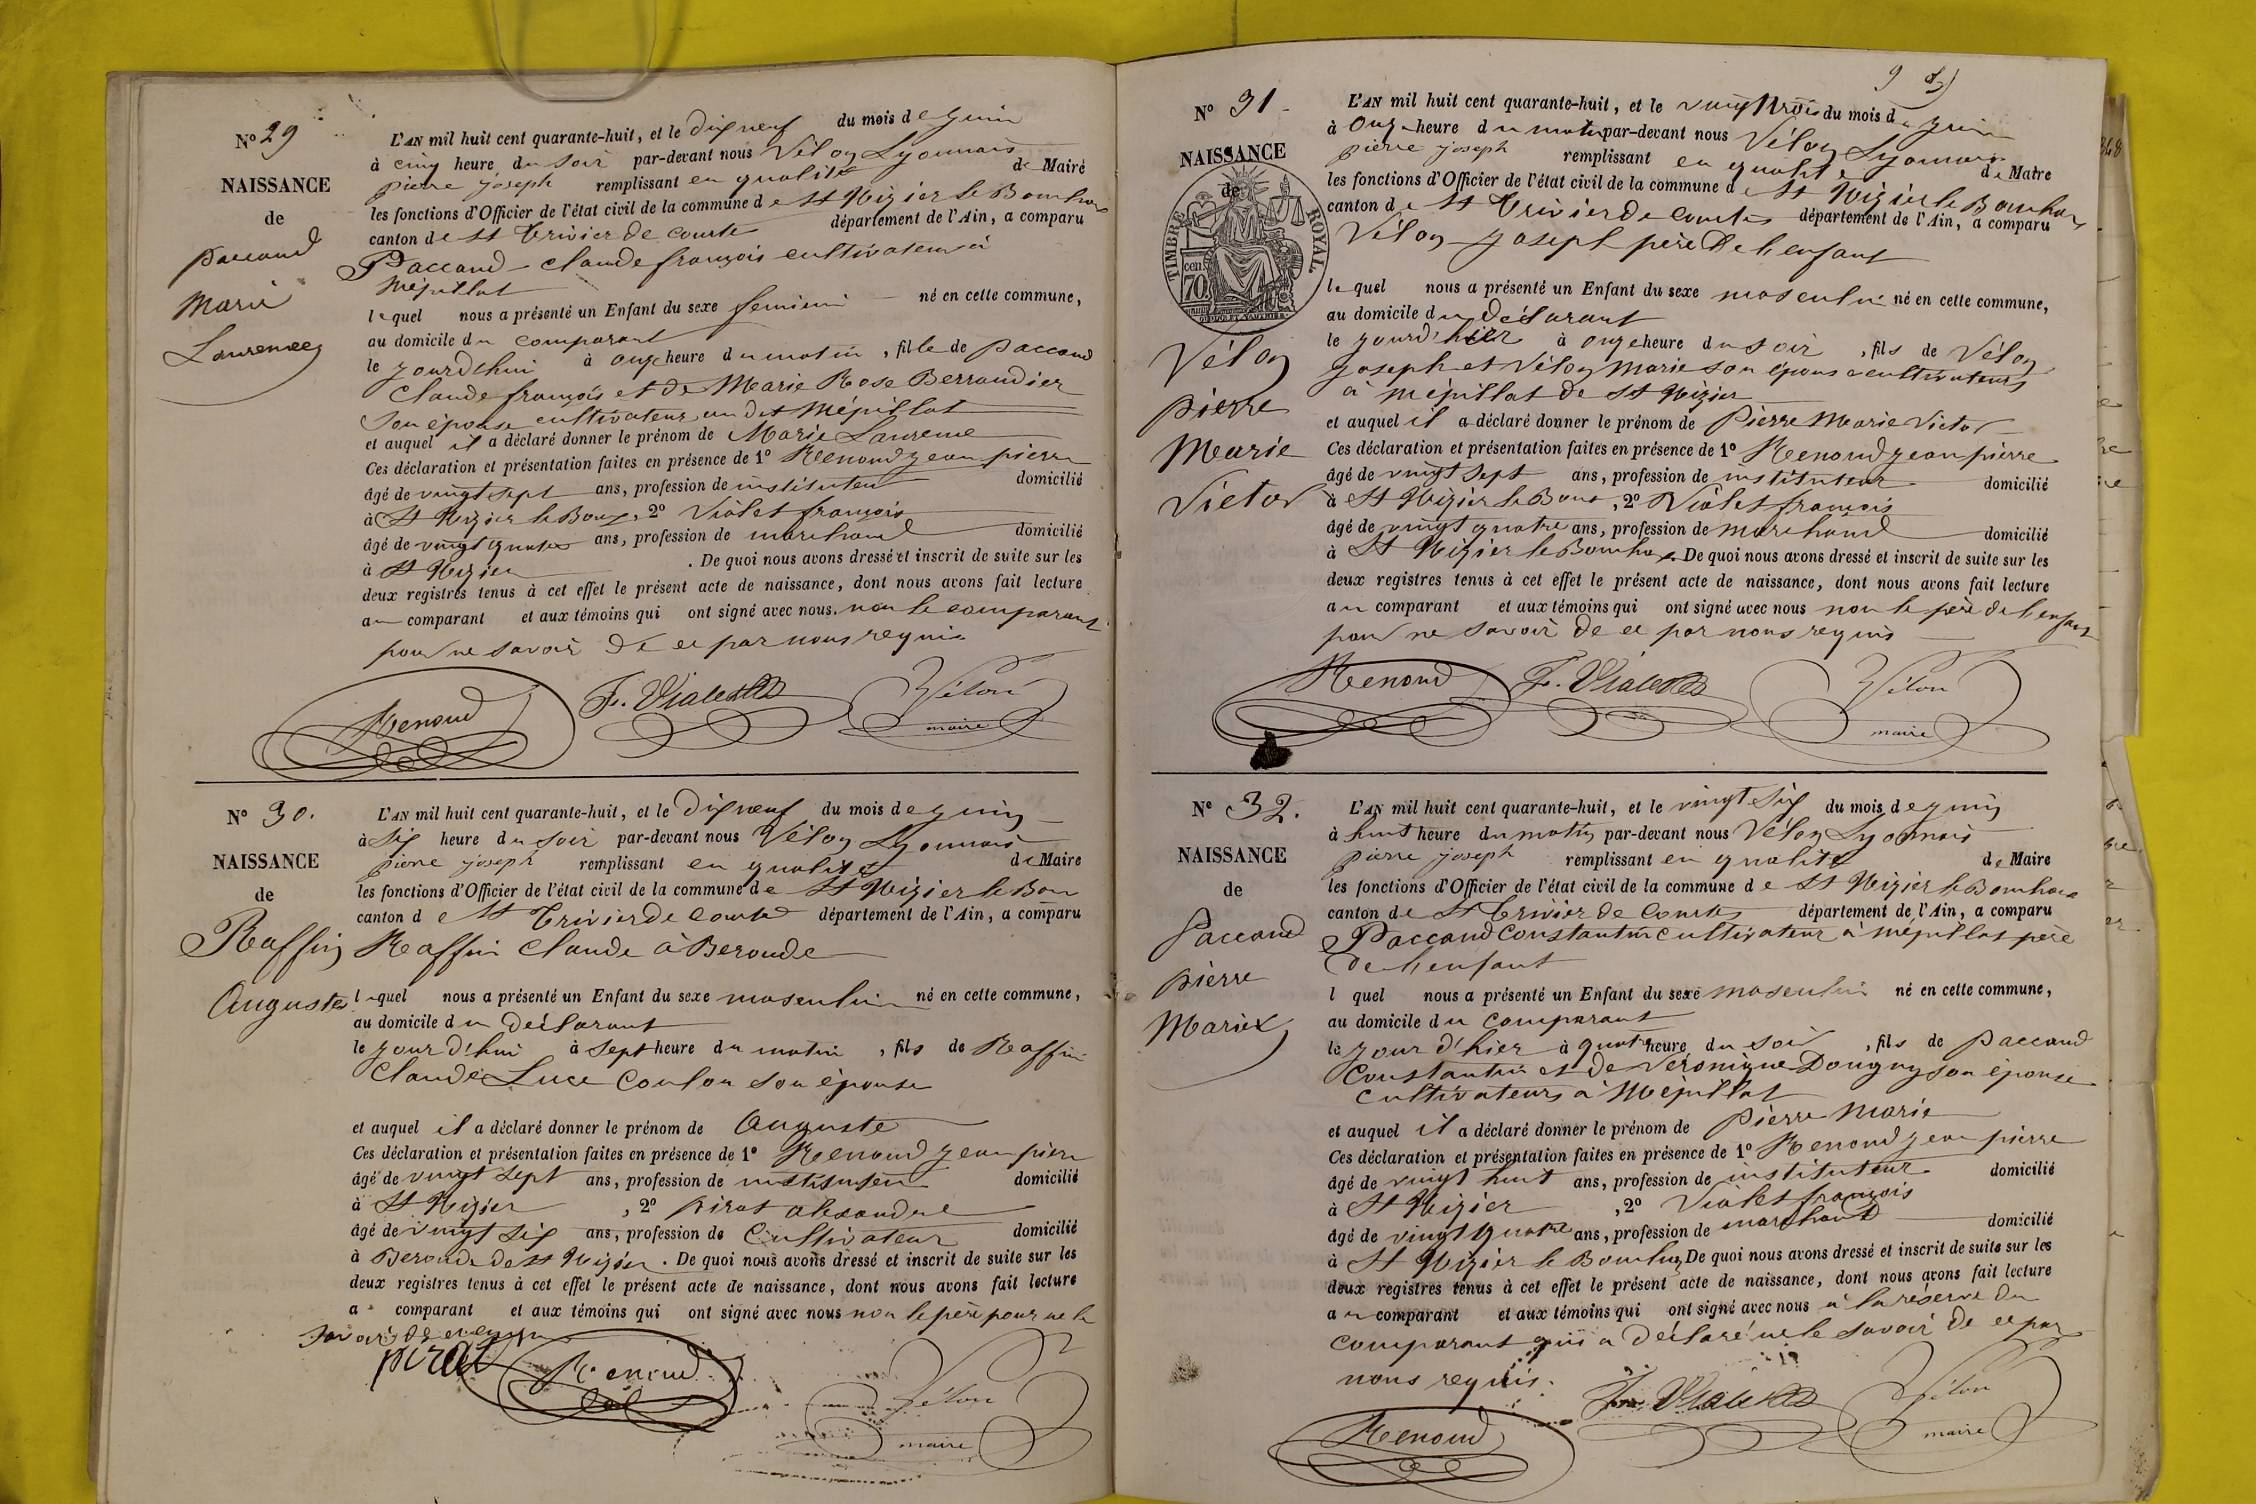 N° 29
NAISSANCE
de
paccaud
Marie
Laurence
L'AN mil huit cent quarante-huit, et le dix neuf du mois de juin
à cinq heure du soir par-devant nous Vélon Lyonnais
pierre joseph remplissant en qualité de Maire
les fonctions d'Officier de l'état civil de la commune de St Nizier le Bouchoux
canton de St Trivier de Courtes département de l'Ain, a comparu
Paccaud claude françois cultivateur à
Mépillat
lequel nous a présenté un Enfant du sexe feminin né en cette commune,
au domicile du comparant
le jourd'hui à onze heure du matin, fille de paccaud
Claude françois et de Marie Rose Berraudier
son épouse cultivateur au dit Mépillat
et auquel il a déclaré donner le prénom de Marie Laurence
Ces déclaration et présentation faites en présence de 1° Renoud jean pierre
âgé de vingt sept ans, profession de instituteur domicilié
à St Nizier le Boux, 2° Violet françois
âgé de vingt quatre ans, profession de marchand domicilié
à St Nizier . De quoi nous avons dressé et inscrit de suite sur les
deux registres tenus à cet effet le présent acte de naissance, dont nous avons fait lecture
au comparant et aux témoins qui ont signé avec nous. non le comparant
pour ne savoir de ce par nous requis
Renoud F. Violet Vélon
maire
N° 30.
NAISSANCE
de
Raffin
Auguste
L'AN mil huit cent quarante-huit, et le dix neuf du mois de juin
à six heure du soir par-devant nous Vélon Lyonnais
pierre joseph remplissant en qualité de Maire
les fonctions d'Officier de l'état civil de la commune de St Nizier le Bou
canton de St Trivier de Courtes département de l'Ain, a comparu
Raffin Claude à Beroude
lequel nous a présenté un Enfant du sexe masculin né en cette commune,
au domicile du déclarant
le jour d'hui à sept heure du matin, fils de Raffin
Claude Luce Coulon son épouse
et auquel il a déclaré donner le prénom de Auguste
Ces déclaration et présentation faites en présence de 1° Renoud jean pierre
âgé de vingt sept ans, profession de instituteur domicilié
à St Nizier, 2° pirat alexandre
âgé de vingt six ans, profession de Cultivateur domicilié
à Beroude de St Nizier. De quoi nous avons dressé et inscrit de suite sur les
deux registres tenus à cet effet le présent acte de naissance, dont nous avons fait lecture
au comparant et aux témoins qui ont signé avec nous non le père pour ne le
savoir de ce
pirat Renoud Vélon
maire
9
N° 31
NAISSANCE
de
TIMBRE ROYAL
70 cen.
Vélon
pierre
Marie
Victor
L'AN mil huit cent quarante-huit, et le vingt trois du mois de juin
à Onze heure du matin par-devant nous Vélon Lyonnais
pierre joseph remplissant en qualité de Maire
les fonctions d'Officier de l'état civil de la commune de St Nizier le Bouchoux
canton de St Trivier de Courtes département de l'Ain, a comparu
Vélon joseph père De l'enfant
lequel nous a présenté un Enfant du sexe masculin né en cette commune,
au domicile du Déclarant
le jourd'hier à onze heure du soir, fils de Vélon
joseph et Vélon Marie son épouse cultivateurs
à Mépillat de St Nizier
et auquel il a déclaré donner le prénom de Pierre Marie Victor
Ces déclaration et présentation faites en présence de 1° Renoud jean pierre
âgé de vingt sept ans, profession de instituteur domicilié
à St Nizier le Bouc, 2° Violet françois
âgé de vingt quatre ans, profession de marchand domicilié
à St Nizier le Bouchoux. De quoi nous avons dressé et inscrit de suite sur les
deux registres tenus à cet effet le présent acte de naissance, dont nous avons fait lecture
au comparant et aux témoins qui ont signé avec nous non le père de l'enfant
pour ne savoir de ce par nous requis
Renoud F. Violet Vélon
maire
N° 32.
NAISSANCE
de
Paccaud
pierre
Marie
L'AN mil huit cent quarante-huit, et le vingt six du mois de juin
à huit heure du matin par-devant nous Vélon Lyonnais
pierre joseph remplissant en qualité de Maire
les fonctions d'Officier de l'état civil de la commune de St Nizier le Bouchoux
canton de St Trivier de Courtes département de l'Ain, a comparu
Paccaud Constantin Cultivateur à Mépillat père
de l'enfant
l quel nous a présenté un Enfant du sexe masculin né en cette commune,
au domicile du comparant
le jour d'hier à quatre heure du soir, fils de paccaud
Constantin et de Véronique Dougny son épouse
cultivateurs à Mépillat
et auquel il a déclaré donner le prénom de pierre Marie
Ces déclaration et présentation faites en présence de 1° Renoud jean pierre
âgé de vingt huit ans, profession de instituteur domicilié
à St Nizier, 2° Violet françois
âgé de vingt quatre ans, profession de marchand domicilié
à St Nizier le Bouchoux De quoi nous avons dressé et inscrit de suite sur les
deux registres tenus à cet effet le présent acte de naissance, dont nous avons fait lecture
au comparant et aux témoins qui ont signé avec nous à la réserve du
comparant qui a déclaré ne le savoir de ce par
nous requis.
Renoud F. Violet Vélon
maire